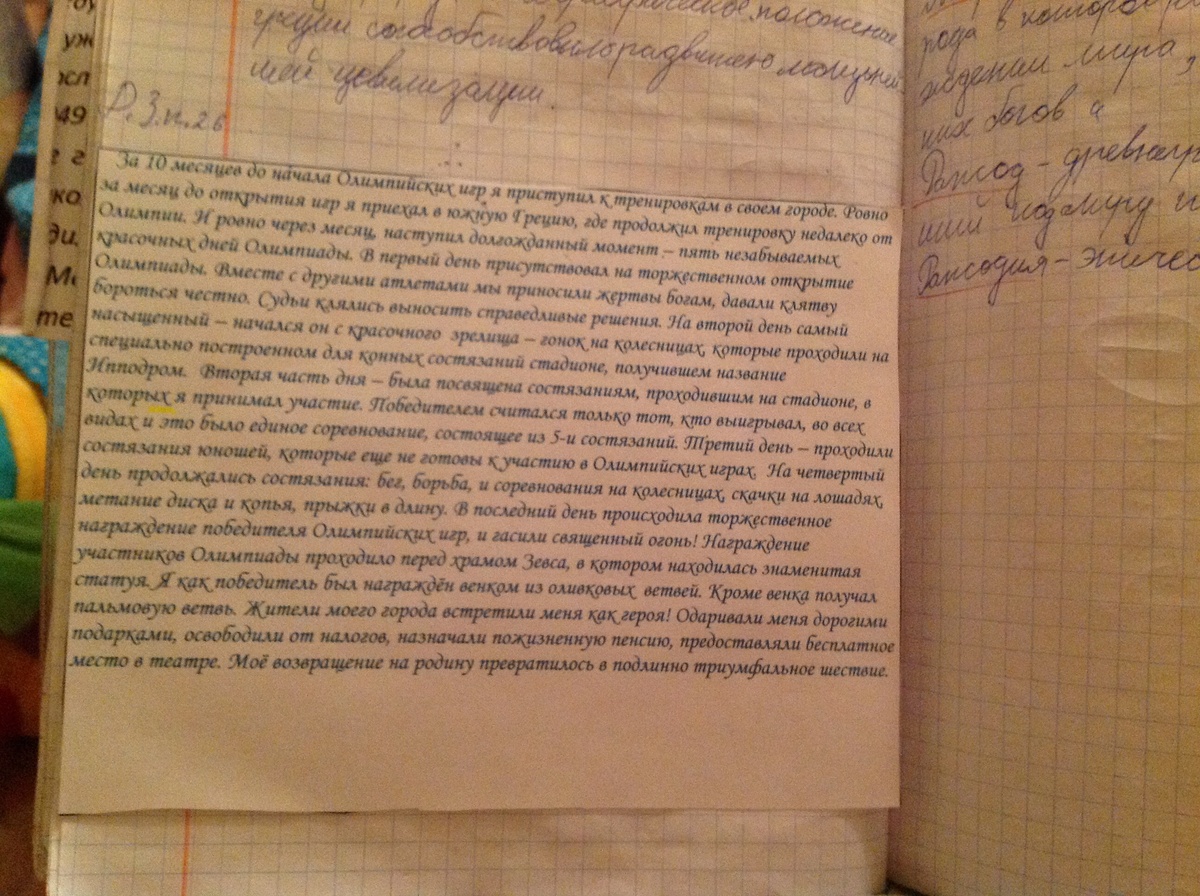 положение
греции способствовало
ией цивилизации.
Д.З.п.26
За 10 месяцев до начала Олимпийских игр я приступил к тренировкам в своем городе. Ровно
за месяц до открытия игр я приехал в южную Грецию, где продолжил тренировку недалеко от
Олимпии. И ровно через месяц, наступил долгожданный момент – пять незабываемых
красочных дней Олимпиады. В первый день присутствовал на торжественном открытие
Олимпиады. Вместе с другими атлетами мы приносили жертвы богам, давали клятву
бороться честно. Судьи клялись выносить справедливые решения. На второй день самый
насыщенный – начался он с красочного зрелища – гонок на колесницах, которые проходили на
специально построенном для конных состязаний стадионе, получившем название
Ипподром. Вторая часть дня – была посвящена состязаниям, проходившим на стадионе, в
которых я принимал участие. Победителем считался только тот, кто выигрывал, во всех
видах и это было единое соревнование, состоящее из 5-и состязаний. Третий день – проходили
состязания юношей, которые еще не готовы к участию в Олимпийских играх. На четвертый
день продолжались состязания: бег, борьба, и соревнования на колесницах, скачки на лошадях,
метание диска и копья, прыжки в длину. В последний день происходила торжественное
награждение победителя Олимпийских игр, и гасили священный огонь! Награждение
участников Олимпиады проходило перед храмом Зевса, в котором находилась знаменитая
статуя. Я как победитель был награждён венком из оливковых ветвей. Кроме венка получал
пальмовую ветвь. Жители моего города встретили меня как героя! Одаривали меня дорогими
подарками, освободили от налогов, назначали пожизненную пенсию, предоставляли бесплатное
место в театре. Моё возвращение на родину превратилось в подлинно триумфальное шествие.
рода в которого
ждении мира,
них богов и
Рапсод - древнегр
ший под
Рапсодия - эпичес
уж
49
те